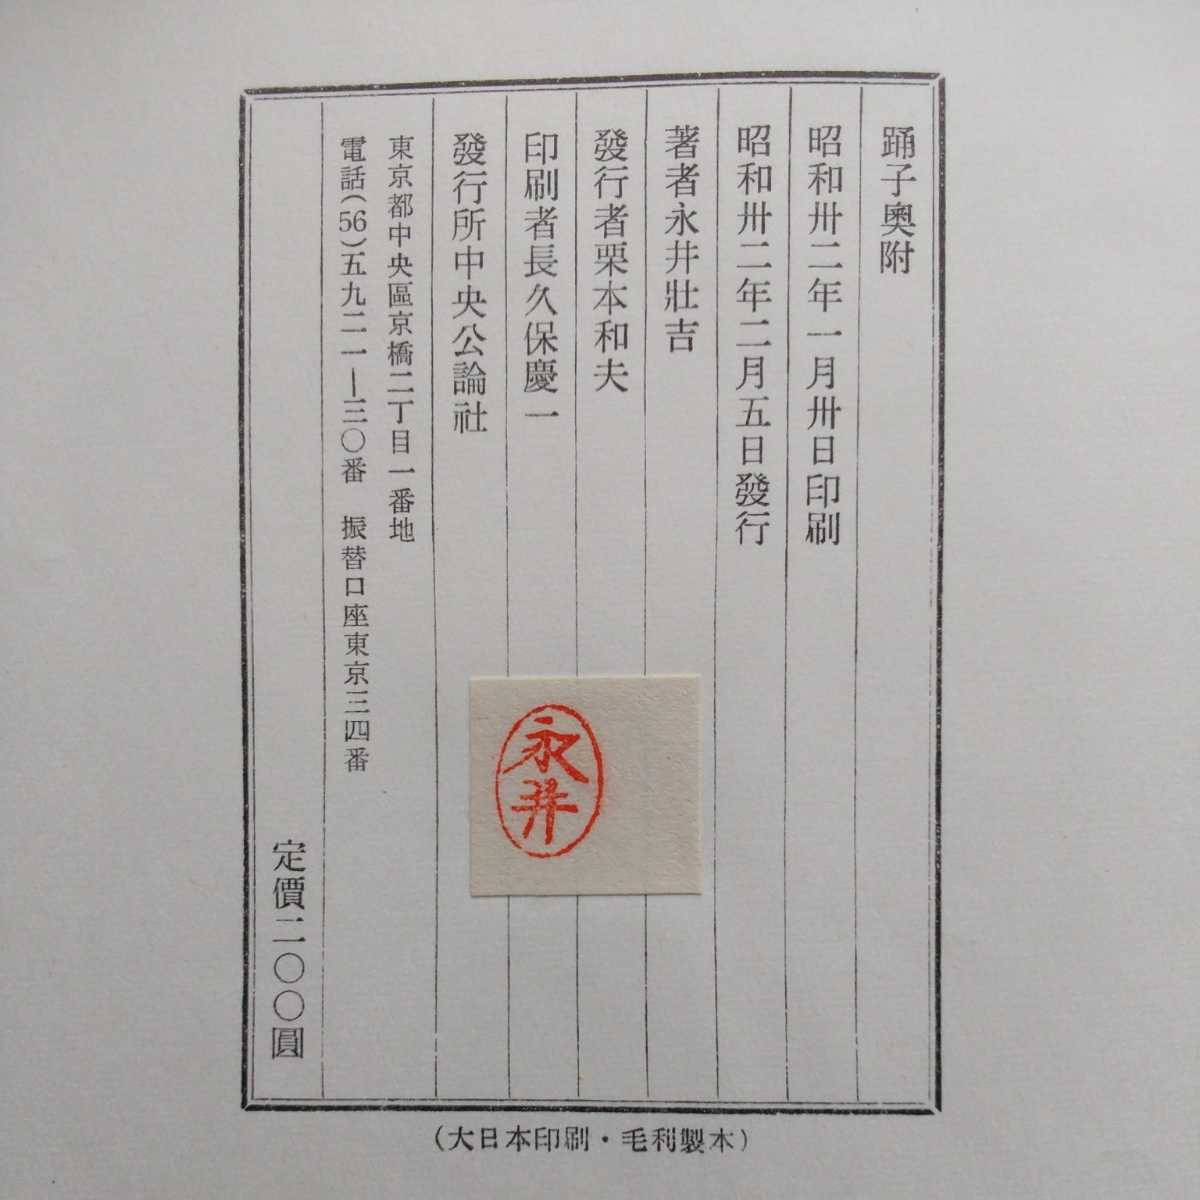 踊子奥附
昭和卅二年一月卅日印刷
昭和卅二年二月五日發行
著者永井壯吉
發行者栗本和夫
印刷者長久保慶一
發行所中央公論社
東京都中央區京橋二丁目一番地
電話(56)五九二一―三〇番　振替口座東京三四番
定價二〇〇圓
永井
(大日本印刷・毛利製本)